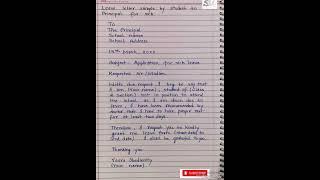 Leave letter sample by student to
Principal for sick
To
The Principal
School name
School Address
15th March, 20XX
Subject - Application for sick leave
Respected Sir/Madam
With due respect, I beg to say that
I am (Your name), student of (Class
& section) not in position to attend
the school as I am down due to
fever. I have been recommended by
doctor that I have to take proper rest for
at least two days.
Therefore, I request you to kindly
grant me leave from (start date) to
(end date). I shall be grateful to you.
Thanking you
Yours Obediently
(Your name).
SUBSCRIBE